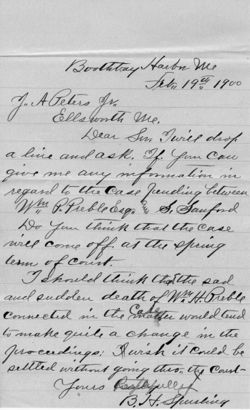 Boothbay Harbor Me
Feb. 19th 1900
J. A. Peters Jr.
Ellsworth Me.
Dear Sir I will drop
a line and ask. If you can
give me any information in
regard to the case pending between
Wm P. Preble Esq & S. Sanford
Do you think that the case
will come off at the spring
term of court.
I should think the sad
and sudden death of Wm H. Preble
connected in the matter would tend
to make quite a change in the
proceedings; I wish it could be
settled without going thro; the court
Yours
B. H. Spurling